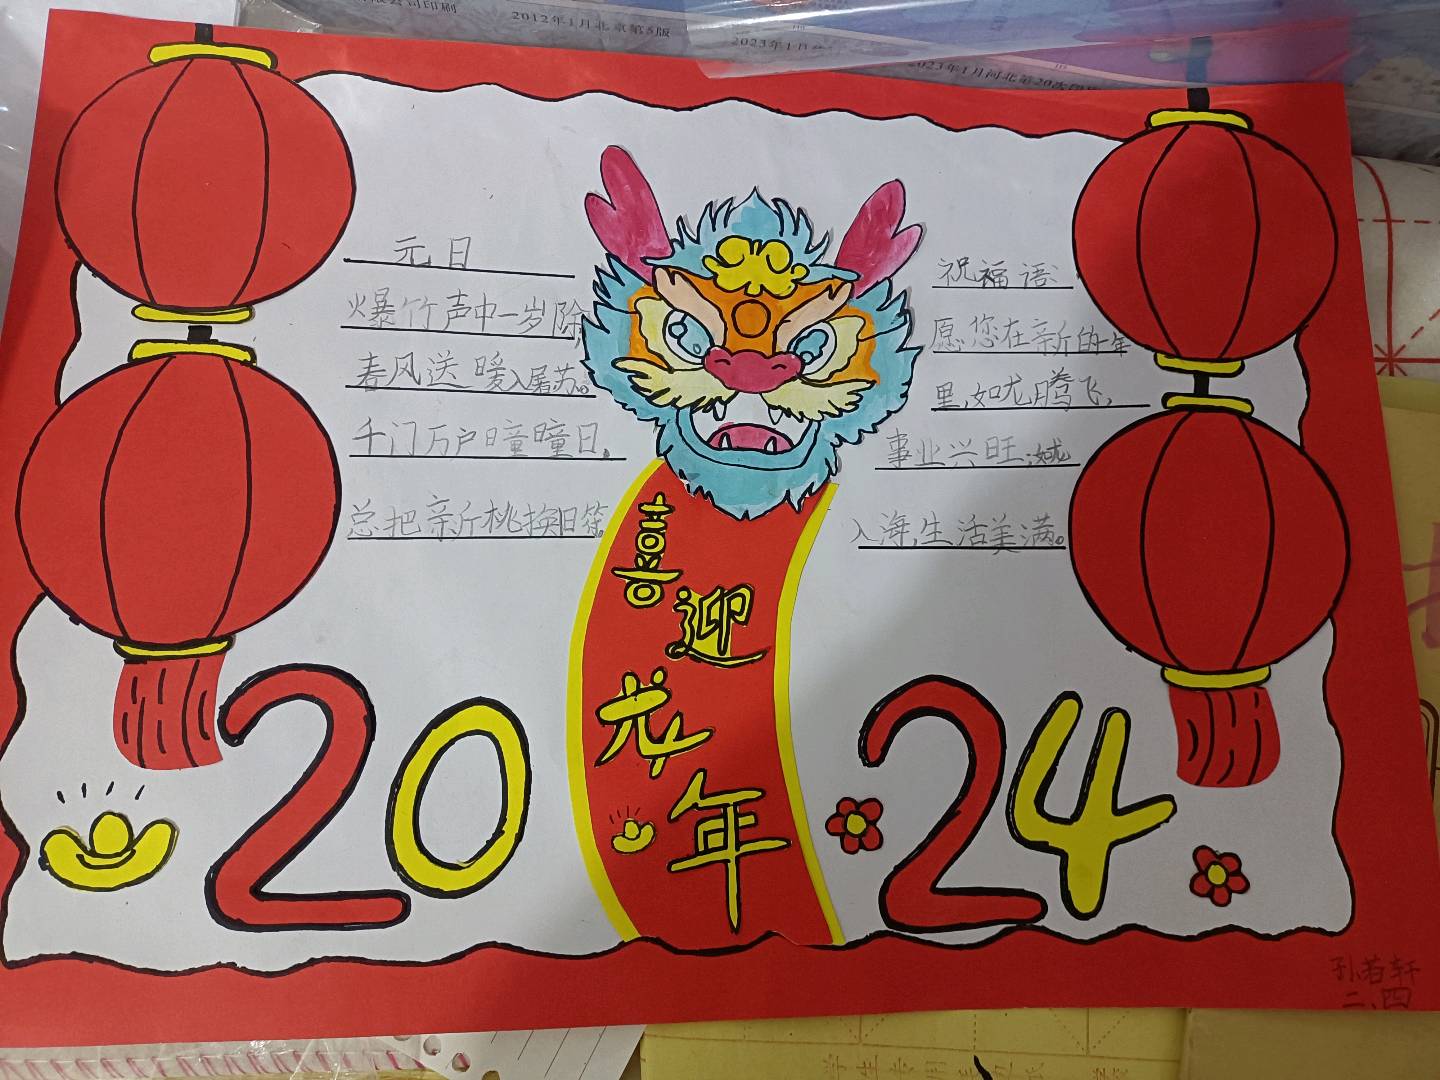 限公司印刷
2012年1月北京第5版
2023年1月
2023年1月河北第20次印
元日
爆竹声中一岁除,
春风送暖入屠苏。
千门万户曈曈日,
总把新桃换旧符。
祝福语
愿您在新的一年
里,如龙腾飞,
事业兴旺;如龙
入海,生活美满。
喜
迎
龙
年
2024
孙若轩
二、四